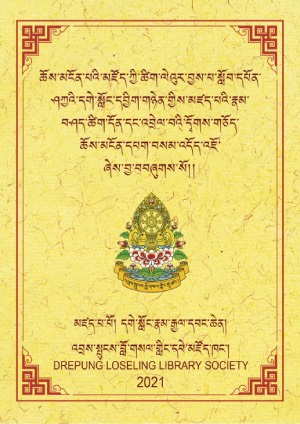 ཆོས་མངོན་པའི་མཛོད་ཀྱི་ཚིག་ལེའུར་བྱས་པ་སློབ་དཔོན་
ཤཀྱའི་དགེ་སློང་དབྱིག་གཉེན་གྱིས་མཛད་པའི་རྣམ་
བཤད་ཚིག་དོན་དང་འབྲེལ་བའི་དྭོགས་གཅོད་
ཆོས་མངོན་དཔག་བསམ་འདོད་འཇོ་
ཞེས་བྱ་བ་བཞུགས་སོ།།
མཛད་པ་པོ། དགེ་སློང་རྣམ་རྒྱལ་དབང་ཆེན།
འབྲས་སྤུངས་བློ་གསལ་གླིང་དཔེ་མཛོད་ཁང་།
DREPUNG LOSELING LIBRARY SOCIETY
2021